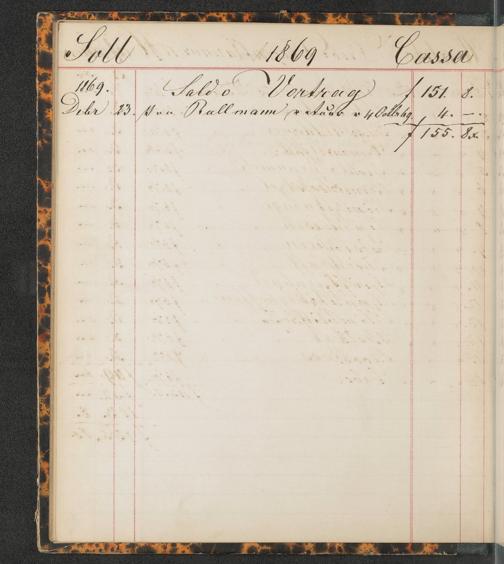 Soll 1869 Cassa
1869. Saldo Vortrag f 151. 8.
Debr 23. von Rallmann 4. —.
f 155. 8x